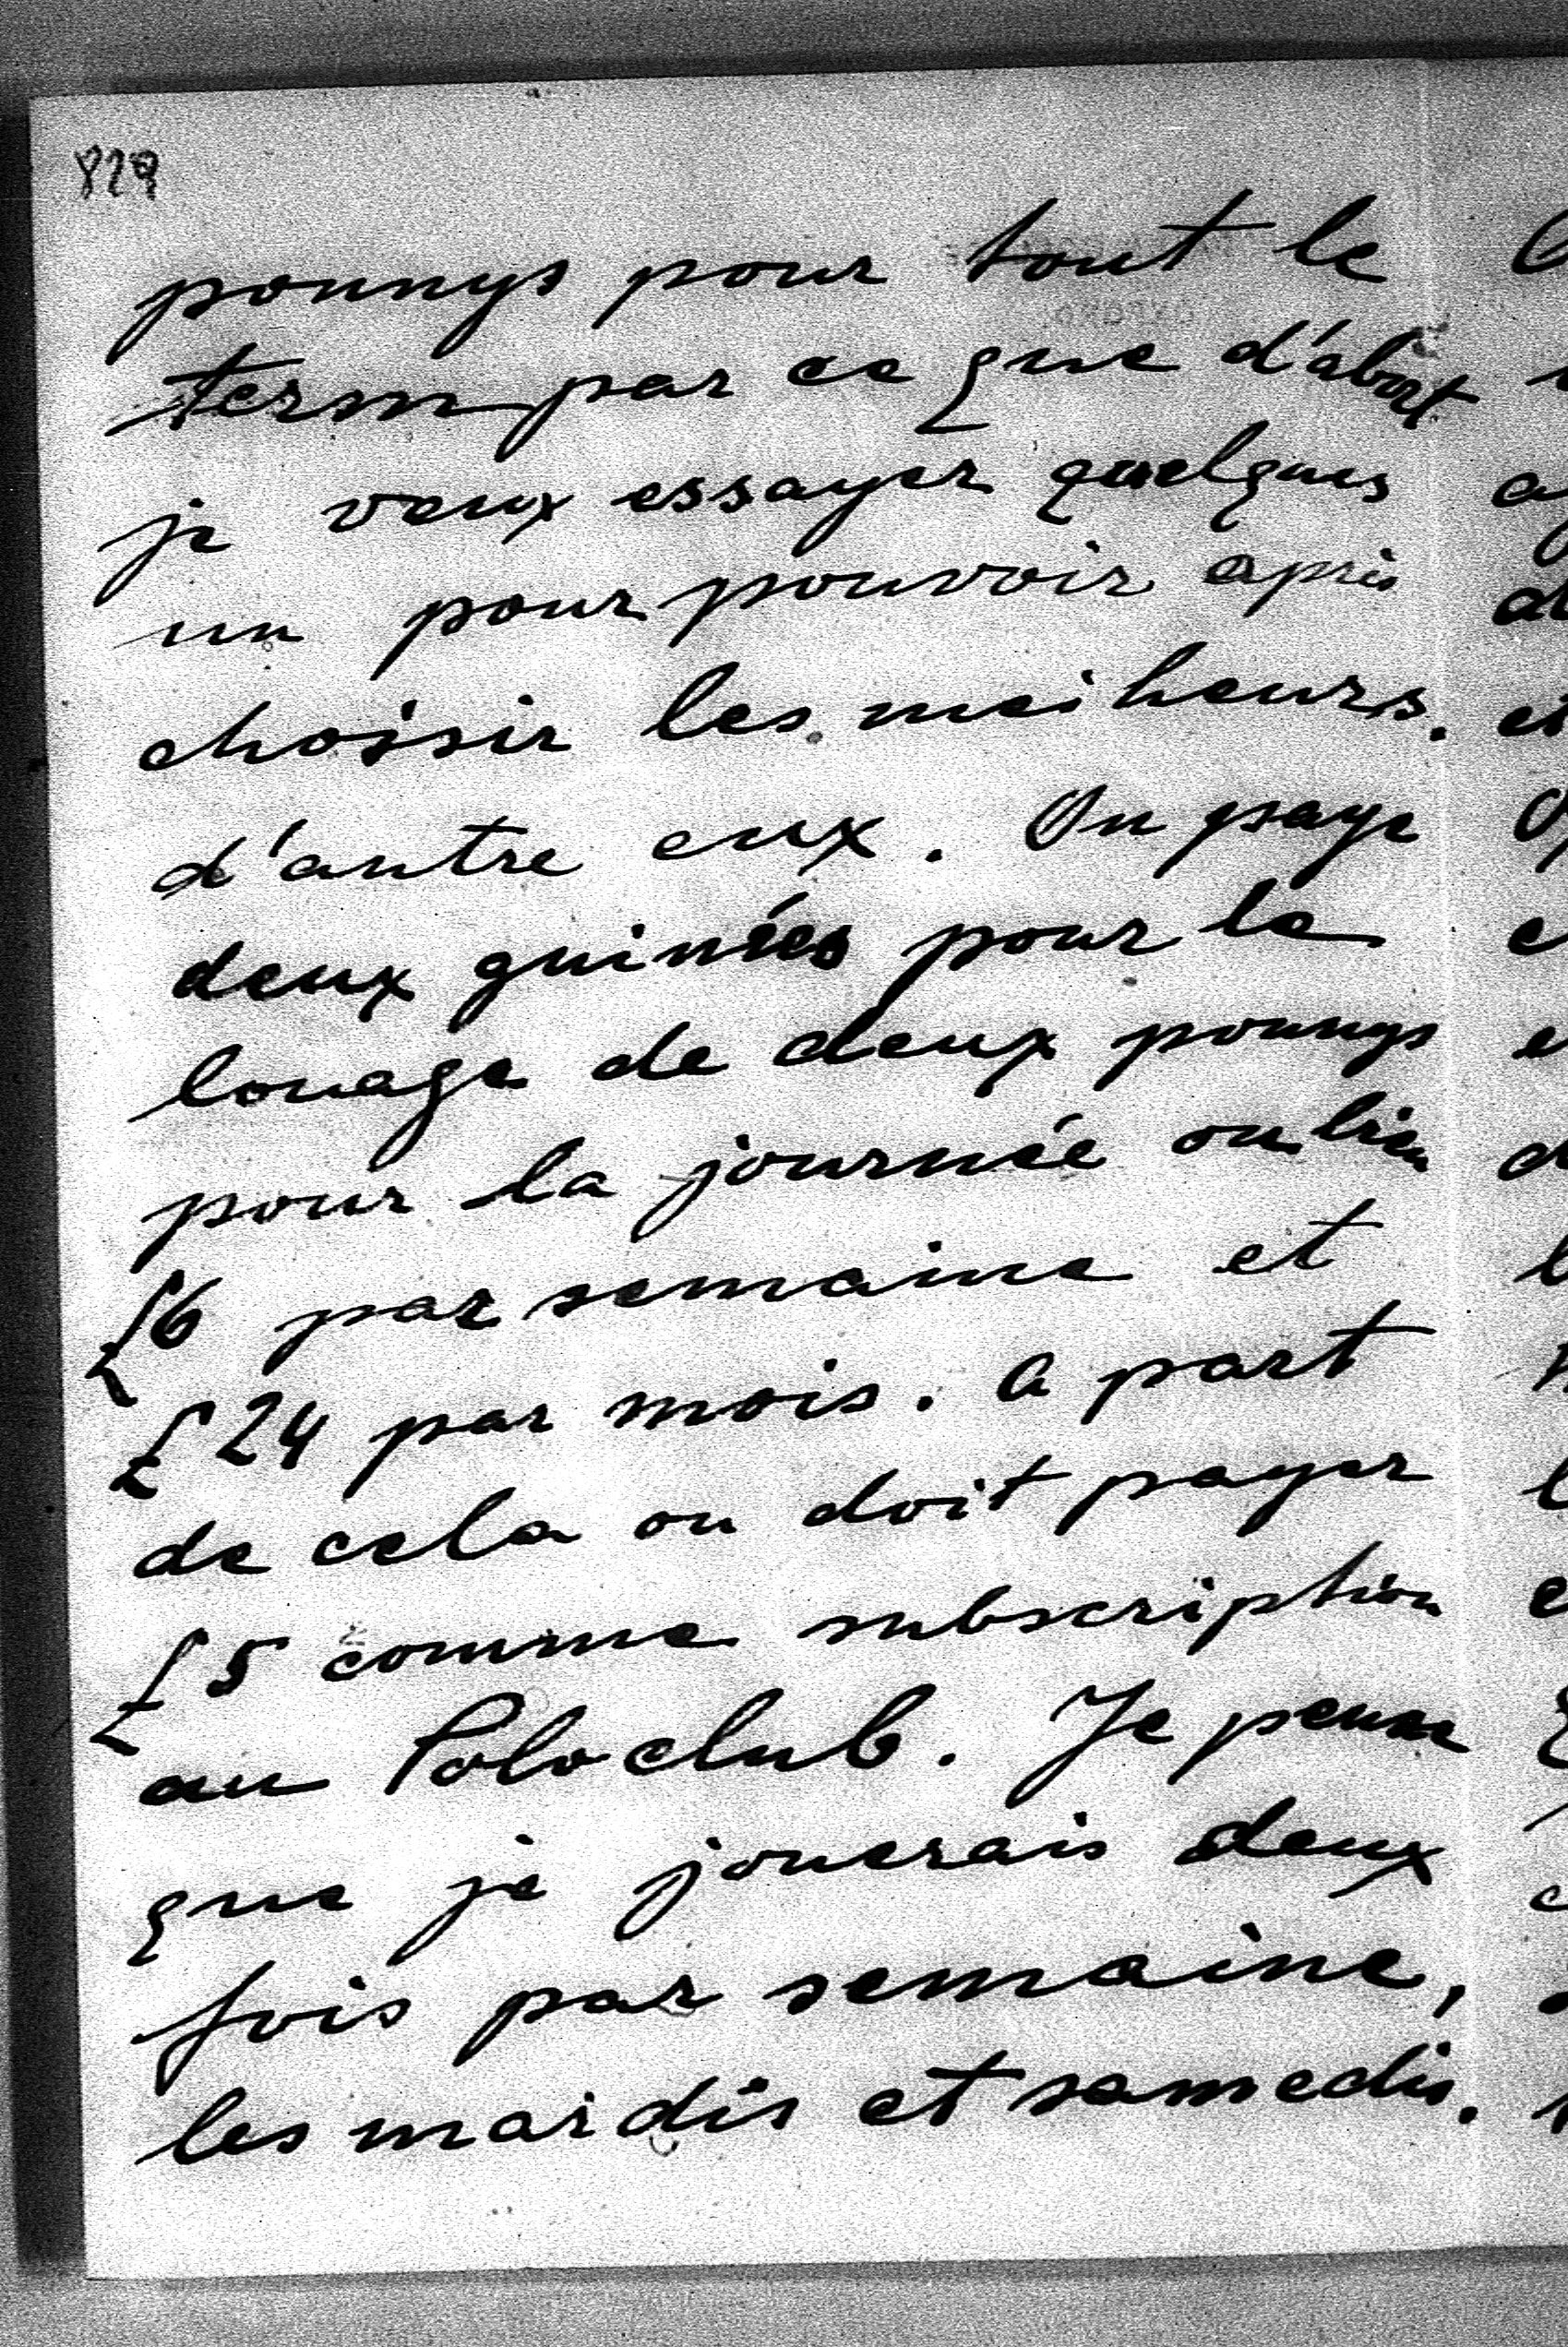 829
ponnys pour tout le
term par ce que d'abort
je veux essayer quelques
un pour pouvoir après
choisir les meilheurs.
d'autre eux. On paye
deux guinées pour le
louage de deux ponnys
pour la journée ou bien
£6 par semaine et
£24 par mois. A part
de cela on doit payer
£5 comme subscription
au Polo club. Je pense
que je jouerais deux
fois par semaine,
les mardis et samedis.